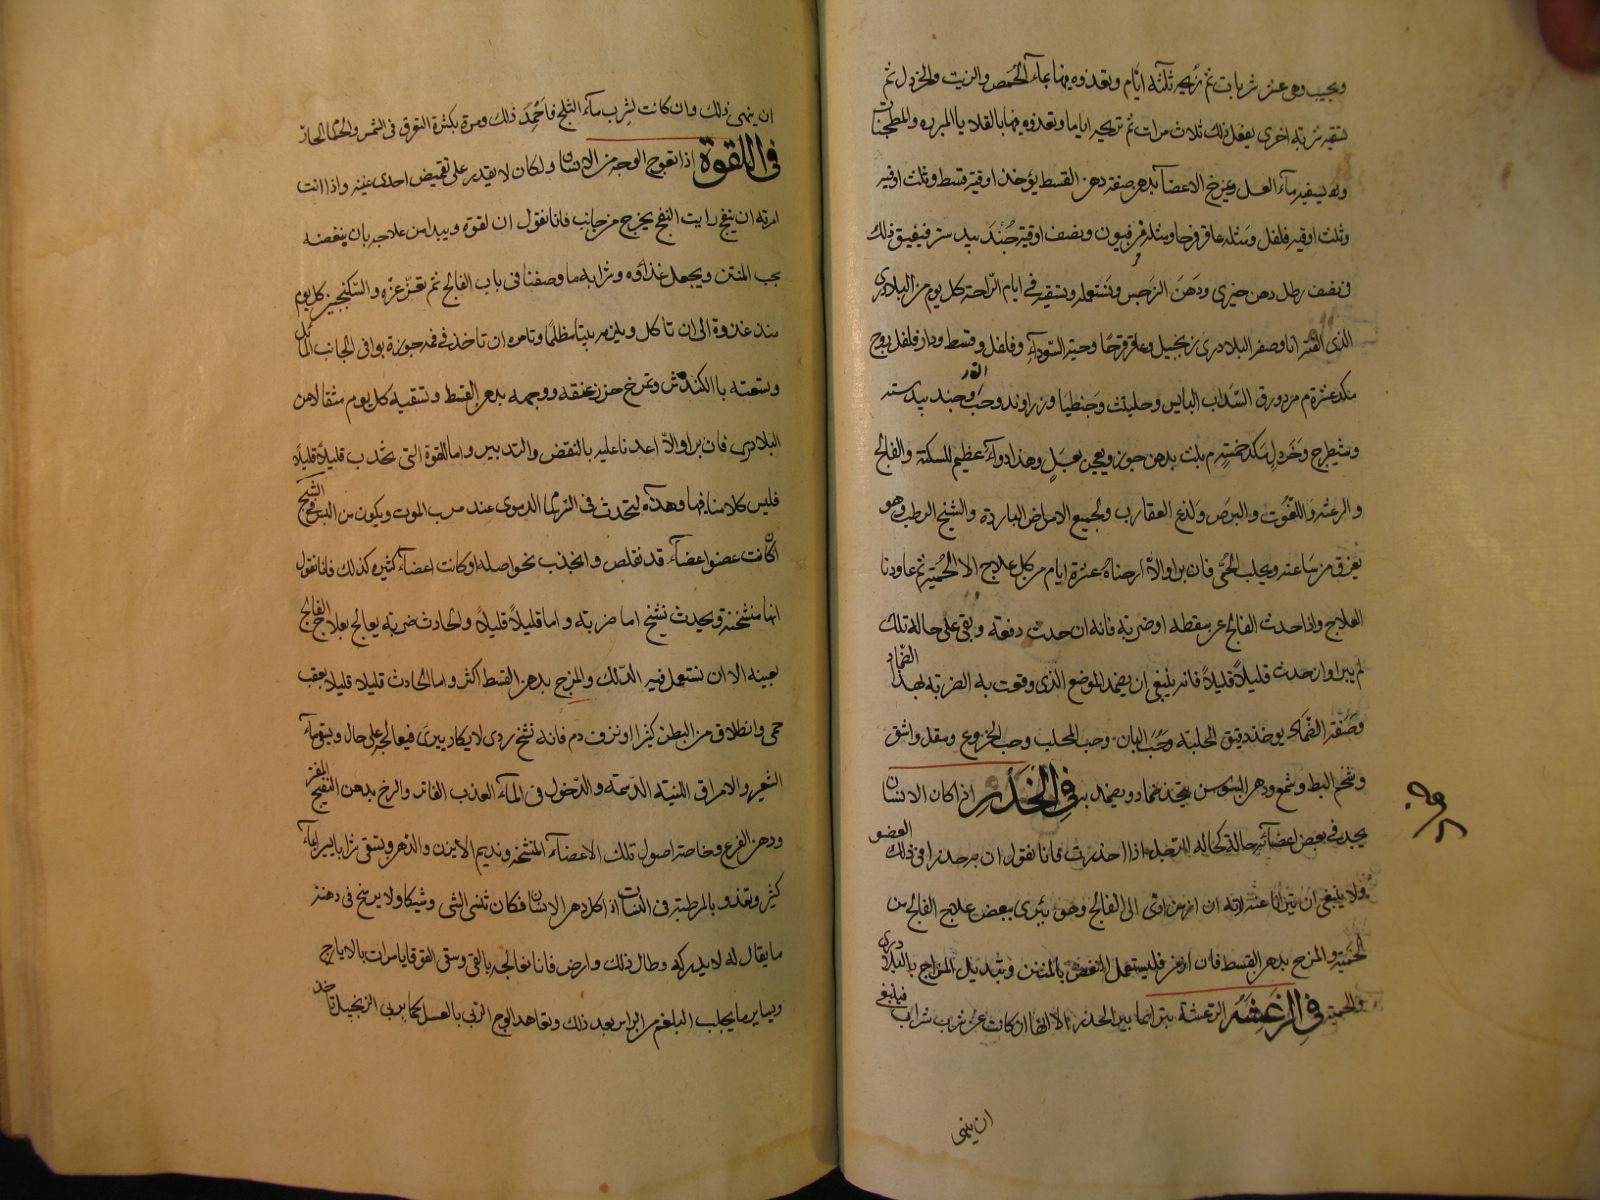 ويجيب وهي عشر شربات ثم تريحه ثلثة ايام وتغذوه فيها بماء الحمص والزيت والخردل ثم
تسقيه شربة اخرى يفعل ذلك ثلاث مرات ثم تريحه اياما وتغذوه فيها بالقلايا المبرزه والمطجنات
وتسقيه ماء العسل وتمرخ الاعضاء بدهن صفته دهن القسط يؤخذ اوقية قسط وثلث اوقية
وثلث اوقية فلفل ومثله عاقرقرحا ومثله فربيون ونصف اوقية جند بيدستر فيفيق ذلك
في نصف رطل دهن خيري ودهن النرجس وتستعمله وتسقيه في ايام الراحة كل يوم من البلادري
الذي الفته انا وصفة البلادري زنجبيل وعاقرقرحا وحبة السوداء وفلفل وقسط ودارفلفل ووج
مكد عشرة م م ورق السداب اليابس وحلتيت وجنطيانا وزراوند وحب الغار وجند بيدستر
وشيطرج وخردل مكد خمسة م يلت بدهن جوز ويعجن بعسل وهذا دواء عظيم للسكتة والفالج
والرعشة واللقوة والبرص ولدغ العقارب ولجميع الامراض الباردة والتشنج الرطب وهو
يعرق من ساعته ويجلب الحمى فان برا والا ارحناه عشرة ايام من كل علاج الا الحمية ثم عاودنا
العلاج واذا حدث الفالج عن سقطة او ضربة فانه ان حدث دفعة وبقي على حاله تلك
لم يبرا وان حدث قليلاً قليلاً فانه ينبغي ان يضمد الموضع الذي وقعت به الضربة بهذا الضماد
وصفة الضماد يوخذ دقيق الحلبة وحب البان وحب المحلب وحب الخروع ومقل واشق
وشحم البط وشمع ودهن السوسن يتخذ ضماد ويضمد به في الخدر اذا كان الانسان
يجد في بعض اعضائه حالة كحالة الرجل اذا خدرت فانا نقول ان به خدرا في ذلك العضو
ولا ينبغي ان يتوانا عنه لانه ان ازمن ادى الى الفالج وهو يبرى ببعض علاج الفالج من
الحمية والمرخ بدهن القسط فان ازمن فليستعمل النفض بالمنتن وتبديل المزاج بالبلادري
والحمية في الرعشة الرعشة بينها بين الخدر الا انها ان كانت عن شرب شراب فينبغي
ان ينهى
ان ينهى ذلك وان كانت لشرب ماء الثلج فاحمه ذلك ومره بكثرة التعرق في الشمس والحمام الحار
في اللقوة اذا تعوج الوجه من الانسان ولكان لا يقدر على تغميض احدى عينيه واذا انت
امرته ان ينفخ رايت النفخ يخرج من جانب فانا نقول ان به لقوة ويبدا من علاجه بان ينفضه
بحب المنتن ويجعل غذاؤه وشرابه ما وصفنا في باب الفالج ثم تغرغره والسكنجبين كل يوم
منذ غدوة الى ان تاكل ويلزم بيتاً مظلماً وتامره ان تاخذ في فمه جوزة بوافي الجانب المائل
وتسعته بالكندش وتمرخ خرز عنقه ووجهه بدهن القسط وتسقيه كل يوم مثقالا من
البلادري فان برا والا اعدنا عليه بالنفض والتدبير واما اللقوة التي تحدث قليلاً قليلاً
فليس كلامنا فيها وهذه تحدث في الدموي عند قرب الموت ويكون من التشنج
اذا كانت عضوا اعضاء قد تقلص وانجذب نحو اصله او كانت اعضاء كثيره كذلك فانا نقول
انها متشنجة ويحدث تشنج اما ضربة واما قليلاً قليلاً والحادث ضربة يعالج بعلاج الفالج
بعينه الا ان تستعمل فيه الدلك والمرخ بدهن القسط اكثر واما الحادث قليلا قليلا بعقب
حمى وانطلاق من البطن كثيرا او نزف دم فانه تشنج ردي لا يكاد يبرى فيعالج على حال ويسقى ماء
الشعير والامراق اللينة الدسمة والدخول في الماء العذب الفاتر والمرخ بدهن البنفسج
ودهن القرع وخاصة اصول تلك الاعضاء المتشنجة ونديم الابزن والدهن ويسقى شرابا يسيرا بماء
كثير وتغذو بالمرطبة في النسيان اذا كان الانسان فكان ثنسى الشي وشيكا ولا يرسخ في ذهنه
ما يقال له لا يدركه وطال ذلك وارض فانا نعالجه بالقي وسقى القوقايا مرات بالايارج
وبساير ما يجلب البلغم من الراس بعد ذلك وتعاهد الوج المربى بالعسل كما يربى الزنجبيل تاخذ